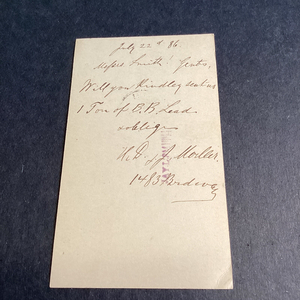 July 22d 86.
Messrs Smith Gents,
Will you Kindley send us
1 Ton of B.B. Lead
& oblige
H.D. & J. Moeller
1483 Brdway